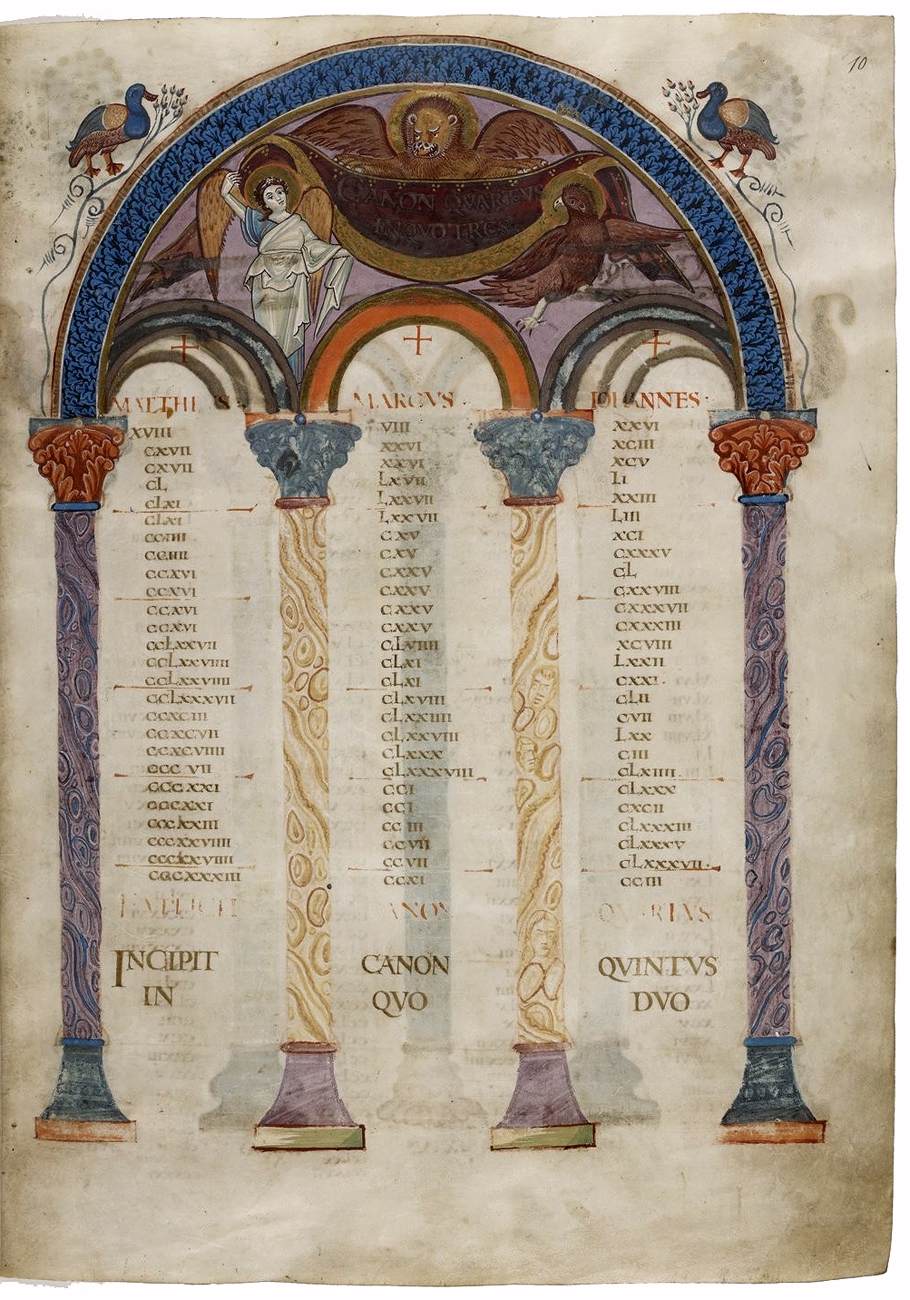 10
CANON QVARTVS
IN QVO TRES
MATTHEVS · MARCVS · IOHANNES ·
XVIII VIII XXVI
CXVII XXVI XCIII
CXVII XXVI XCV
CL LXVII LI
CLXI LXXVII XXIII
CLXI LXXVII LIII
CCIIII CXV XCI
CCIIII CXV CXXXV
CCXVI CXXV CL
CCXVI CXXV CXXVIII
CCXVI CXXV CXXXVII
CCXVI CXXV CXXXIII
CCLXXVII CLVIIII XCVIII
CCLXXVIIII CLXI LXXII
CCLXXVIIII CLXI CXXI·
CCLXXXVII CLXVIII CLII
CCXCIII CLXXIIII CVII
CCXCVII CLXXVIII LXX
CCXCVIIII CLXXX CIII
CCCVII CLXXXVIII CLXIIII
CCCXXI CCI CLXXX
CCCXXI CCI CXCII
CCCXXIII CCIII CLXXXIII
CCCXXVIIII CCVII CLXXXV
CCCXXVIIII CCVII CLXXXVII·
CCCXXXIII CCXI CCIII
EXPLICIT CANON QVARTVS
INCIPIT CANON QVINTVS
IN QVO DVO